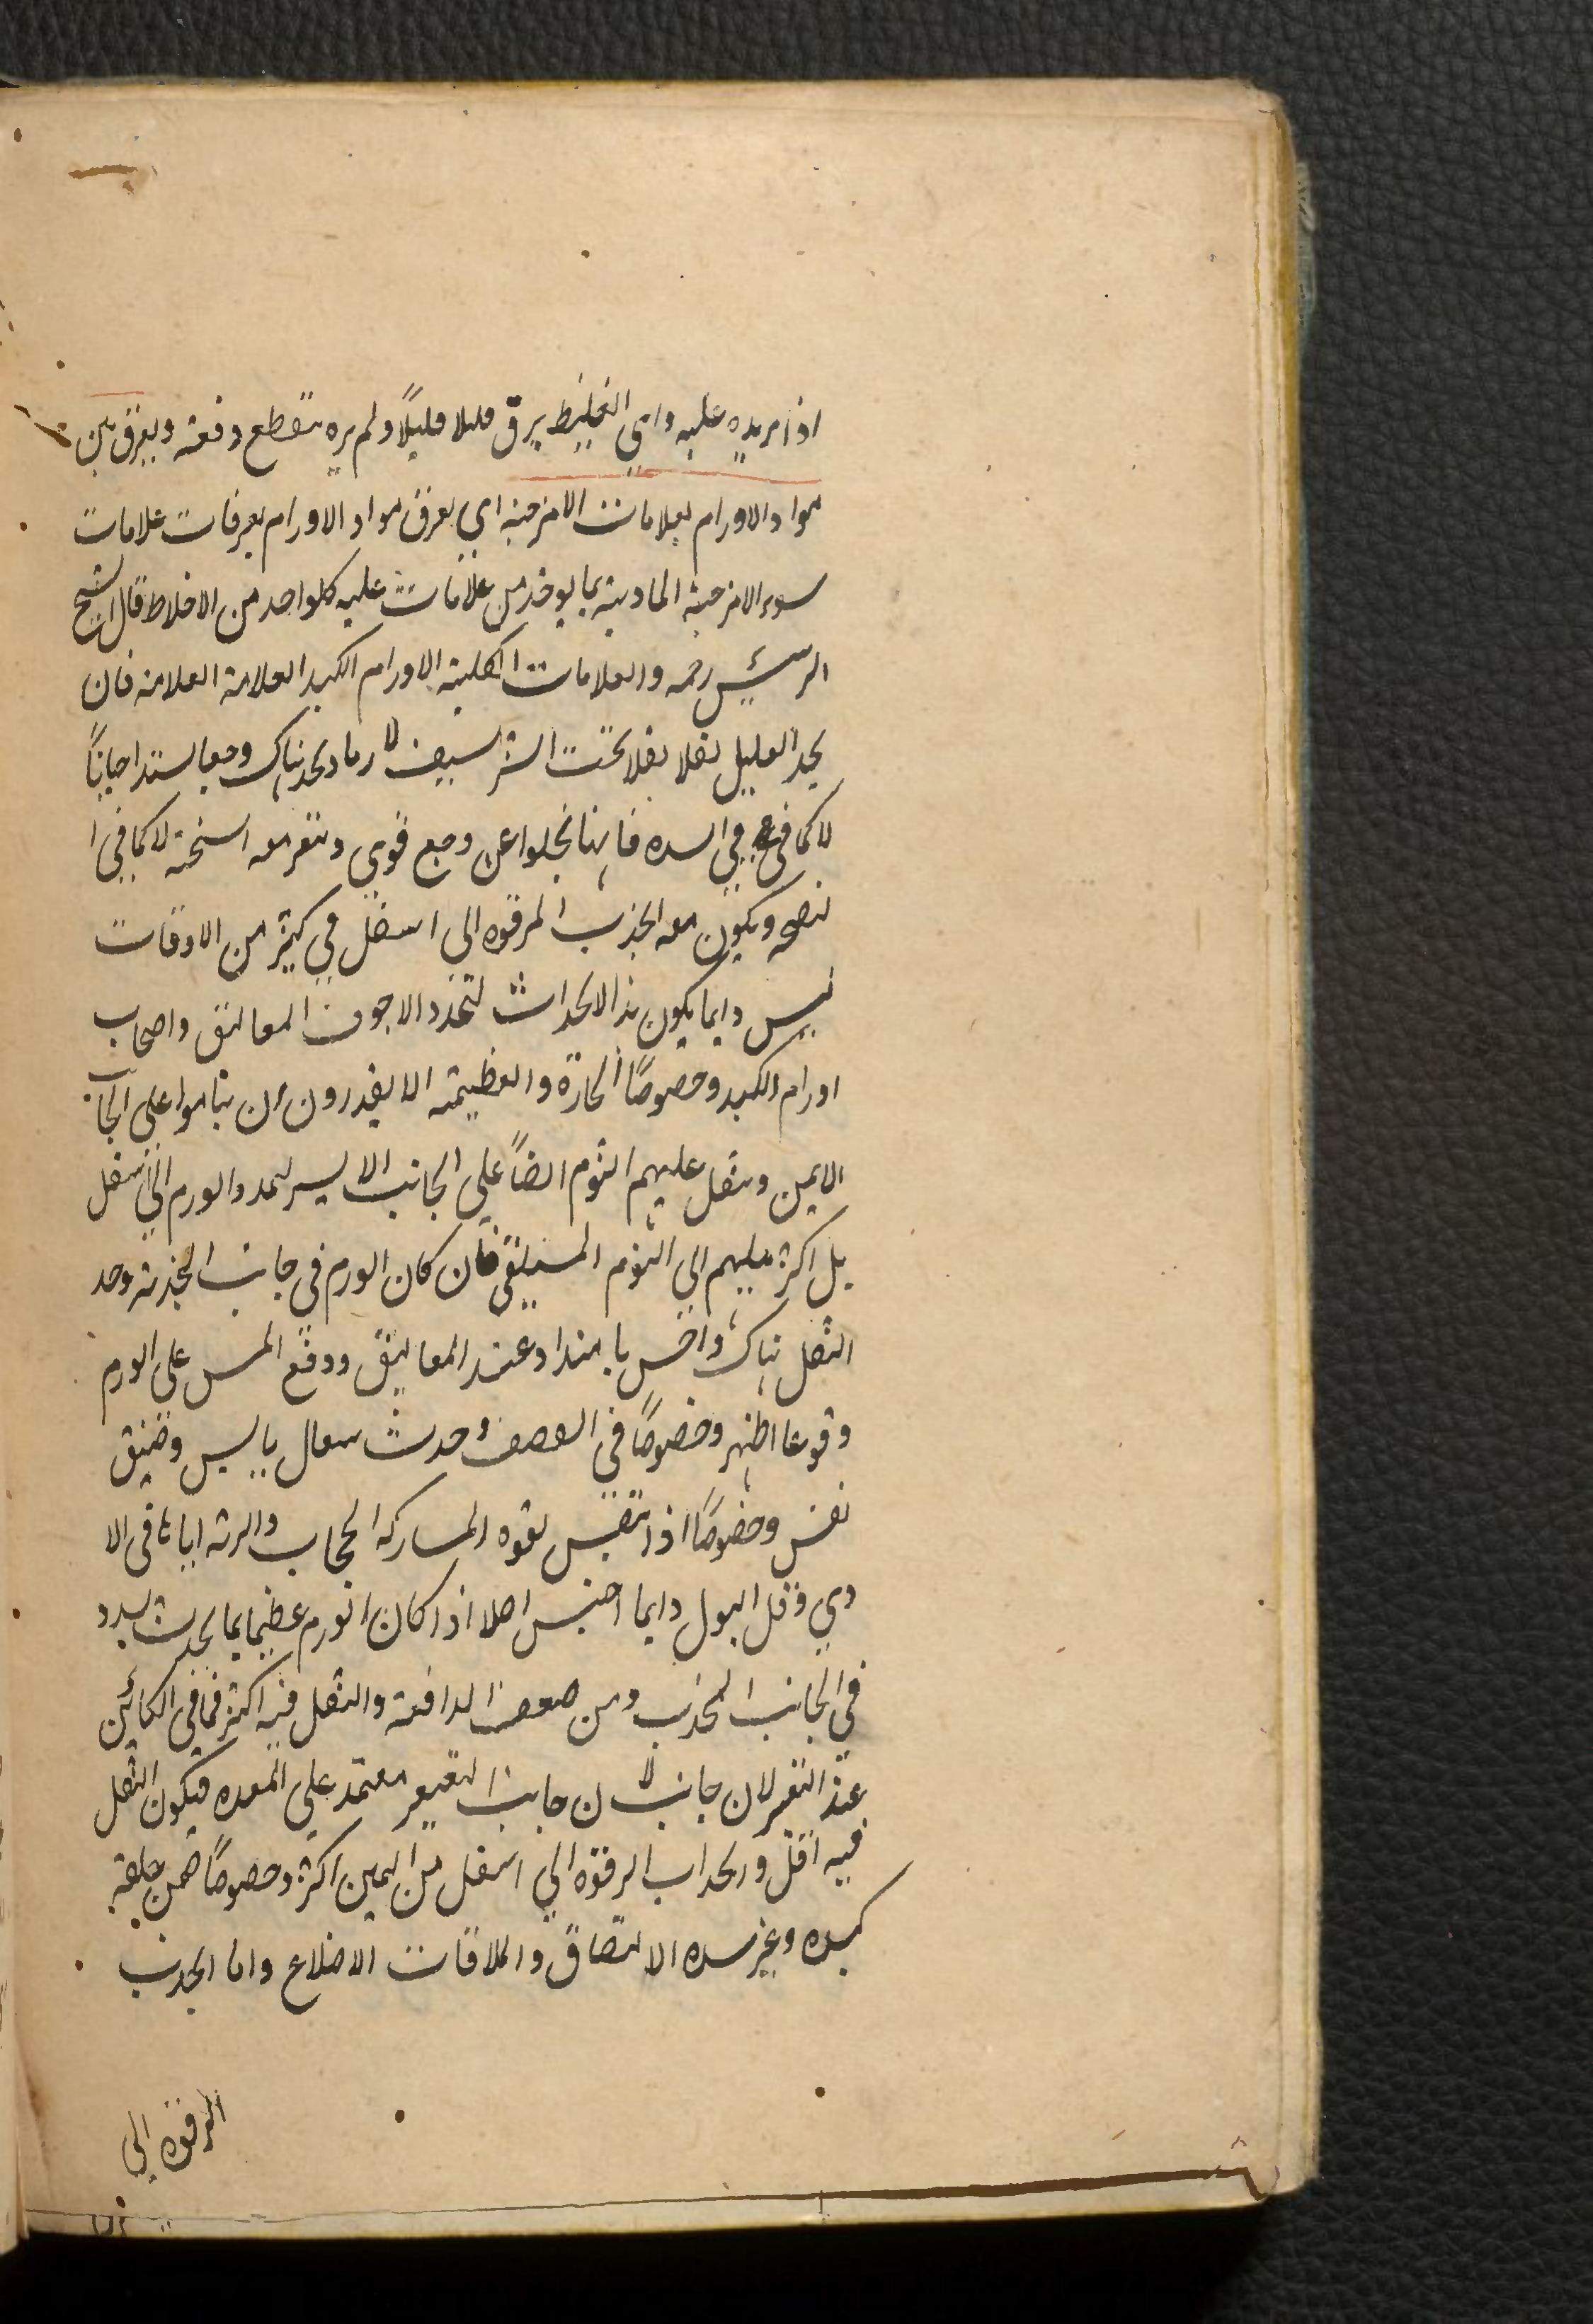 اذا مر يده عليه داي الغليظ يرق قليلا قليلاً ولم يره ينقطع دفعة ويفرق بين
مواد الاورام بعلامات الامزجة اي يعرف مواد الاورام بعرفات علامات
سوء الامزجة المادية بما يوخذ من علامات غلبه كلواحد من الاخلاط قال الشيخ
الرئيس رحمه والعلامات الكلية الاورام الكبد العلامة العلامة فان
يجد العليل ثقلا ثقلا تحت الشراسيف لا رما ويجد هناك وجعا يشتد احياناً
لا كما في في السده فانها تخلوا عن وجع قوي وتتغير معه السحنة لا كما في ا
لنفخه ويكون معه انجذب الترقوه الى اسفل في كثير من الاوقات
ليس دايما يكون هذا الانجداث لتمدد الاجوف المعاليق واصحاب
اورام الكبد وخصوصًا الحارة والعظيمة الا يقدرون ان يناموا على الجانب
الايمن ويثقل عليهم النوم ايضاً على الجانب الايسر لتمدد الورم الى اسفل
بل اكثر ميلهم الى النوم المستلقي فان كان الورم في جانب الحدبة وجد
الثقل هناك واحس بامتداد عند المعاليق ووقع المس على الورم
وقوعا اظهر وخصوصًا في القصف وحدث سعال يابس وضيق
نفس وخصوصًا اذا تنفس بقوه المساركه الحجاب والرئه اياها في الا
ذي وقل البول دايما احتبس اصلا اذا كان الورم عظيما بما يحدث سدد
في الجانب المحدب ومن ضعف الدافعة والثقل فيه اكثر مما في الكائن
عند التقعير لان جانب لا ن جانب التقعير معتمد على المعده فيكون الثقل
فيه اقل وانجداب الترقوه الى اسفل من اليمين اكثر وخصوصًا فمن خلقة
كبده وغير سده الالتصاق والملاقات الاضلاع واما انجدب
الترقوه الى